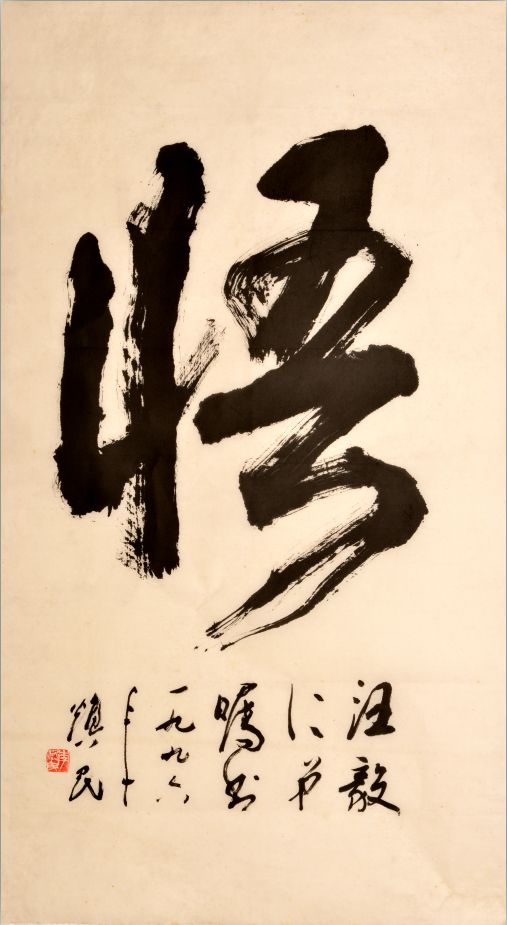 悟
汪毅
仁弟
嘱书
一九九六
年
焕民